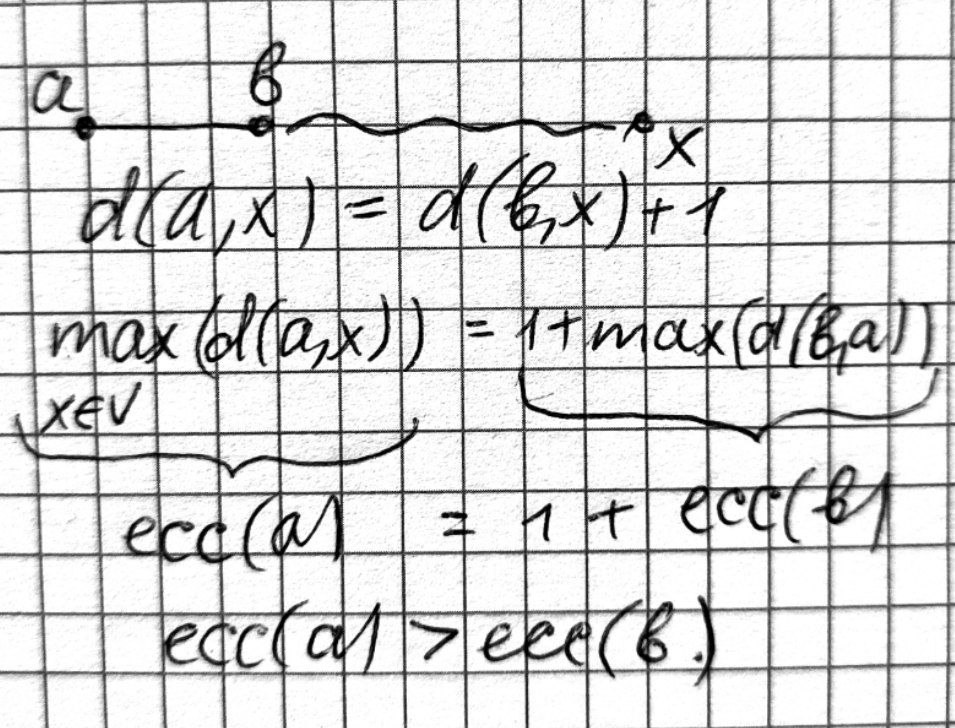 a b
x
d(a,x) = d(b,x)+1
max(d(a,x)) = 1+max(d(b,a))
x∈V
ecc(a) = 1 + ecc(b)
ecc(a) > ecc(b.)